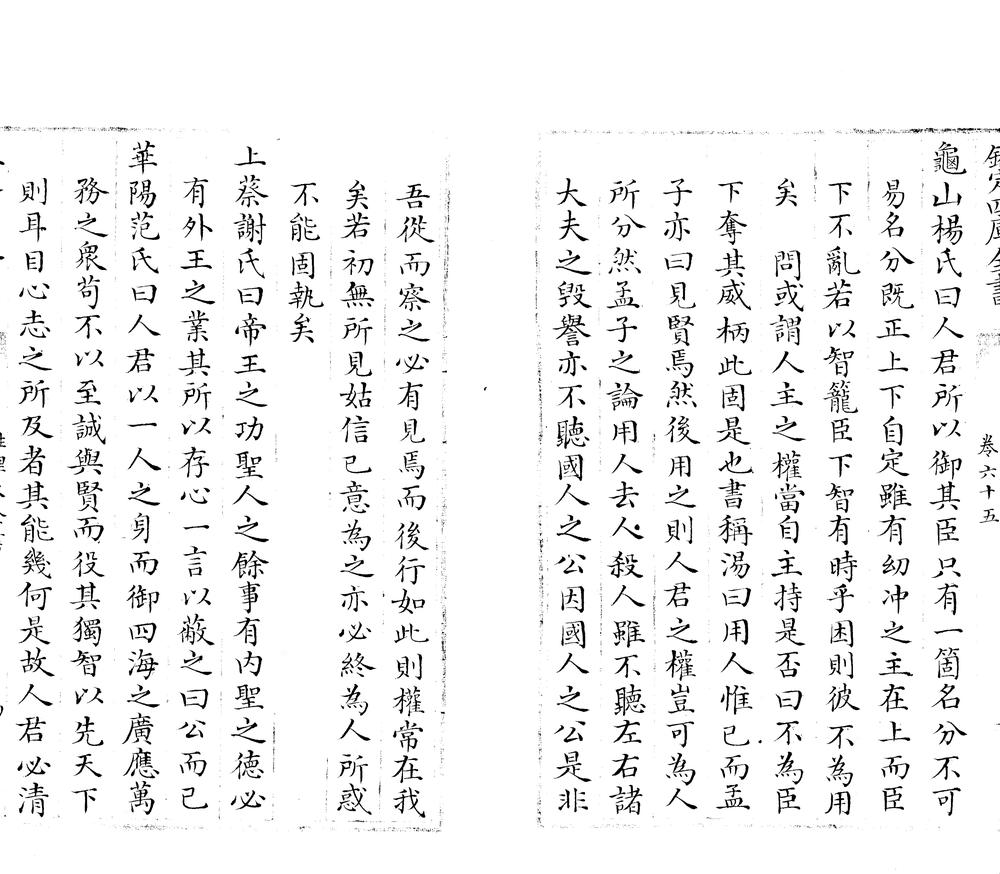 欽定四庫全書
卷六十五
龜山楊氏曰人君所以御其臣只有一箇名分不可
易名分既正上下自定雖有幼冲之主在上而臣
下不亂若以智籠臣下智有時乎困則彼不為用
矣　問或謂人主之權當自主持是否曰不為臣
下奪其威柄此固是也書稱湯曰用人惟已而孟
子亦曰見賢焉然後用之則人君之權豈可為人
所分然孟子之論用人去人殺人雖不聽左右諸
大夫之毀譽亦不聽國人之公因國人之公是非
吾從而察之必有見焉而後行如此則權常在我
矣若初無所見姑信已意為之亦必終為人所惑
不能固執矣
上蔡謝氏曰帝王之功聖人之餘事有内聖之德必
有外王之業其所以存心一言以蔽之曰公而已
華陽范氏曰人君以一人之身而御四海之廣應萬
務之衆苟不以至誠與賢而役其獨智以先天下
則耳目心志之所及者其能幾何是故人君必清